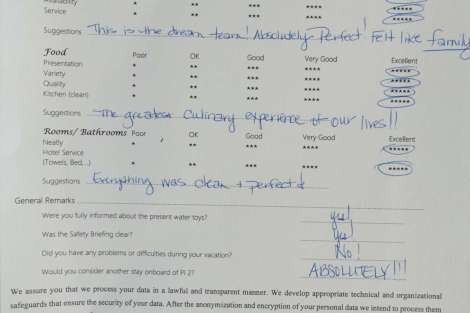 Availability * ** *** **** *****
Service * ** *** **** *****
Suggestions This is the dream team! Absolutely Perfect! Felt like family
Food Poor OK Good Very Good Excellent
Presentation * ** *** **** *****
Variety * ** *** **** *****
Quality * ** *** **** *****
Kitchen (clean) * ** *** **** *****
Suggestions The greatest culinary experience of our lives!!
Rooms/ Bathrooms Poor OK Good Very Good Excellent
Neatly * ** *** **** *****
Hotel Service
(Towels, Bed...) * ** *** **** *****
Suggestions Everything was clean + perfect!
General Remarks
Were you fully informed about the present water toys? yes!
Was the Safety Briefing clear? Yes!
Did you have any problems or difficulties during your vacation? No!
Would you consider another stay onboard of Pi 2? ABSOLUTELY!!!
We assure you that we process your data in a lawful and transparent manner. We develop appropriate technical and organizational
safeguards that ensure the security of your data. After the anonymization and encryption of your personal data we intend to process them